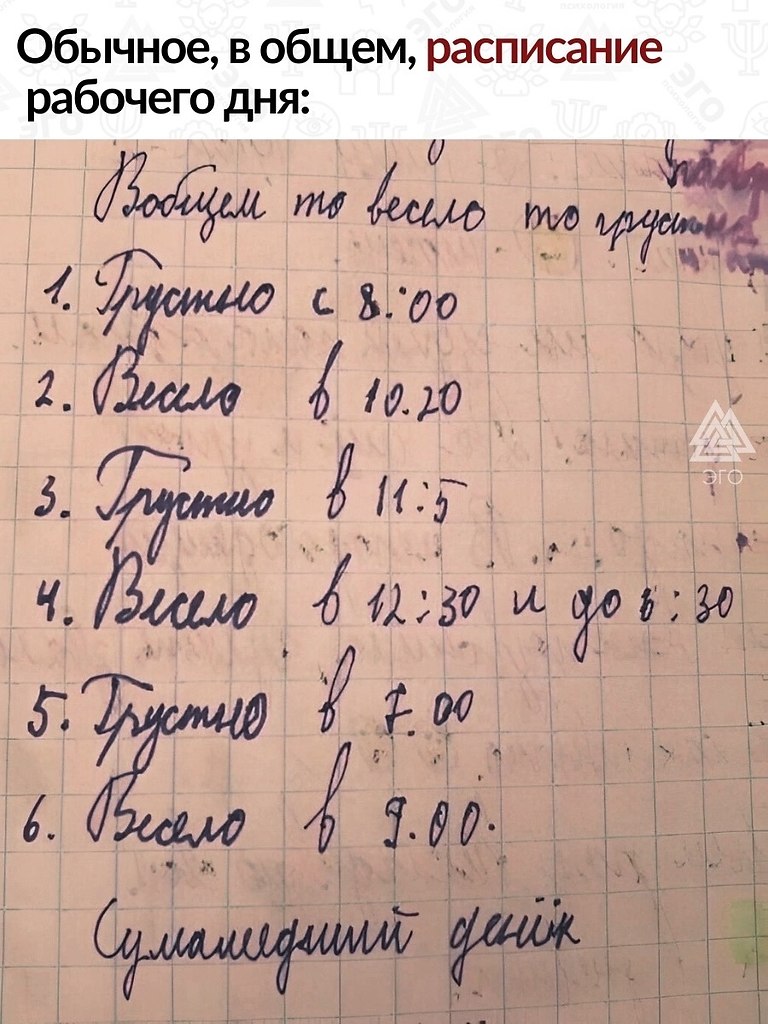 Обычное, в общем, расписание
рабочего дня:
Вобщем то весело то грустно
1. Грустно с 8:00
2. Весело в 10.20
3. Грустно в 11:5
4. Весело в 12:30 и до 5:30
5. Грустно в 7.00
6. Весело в 9.00.
Сумашедший денёк
ЭГО